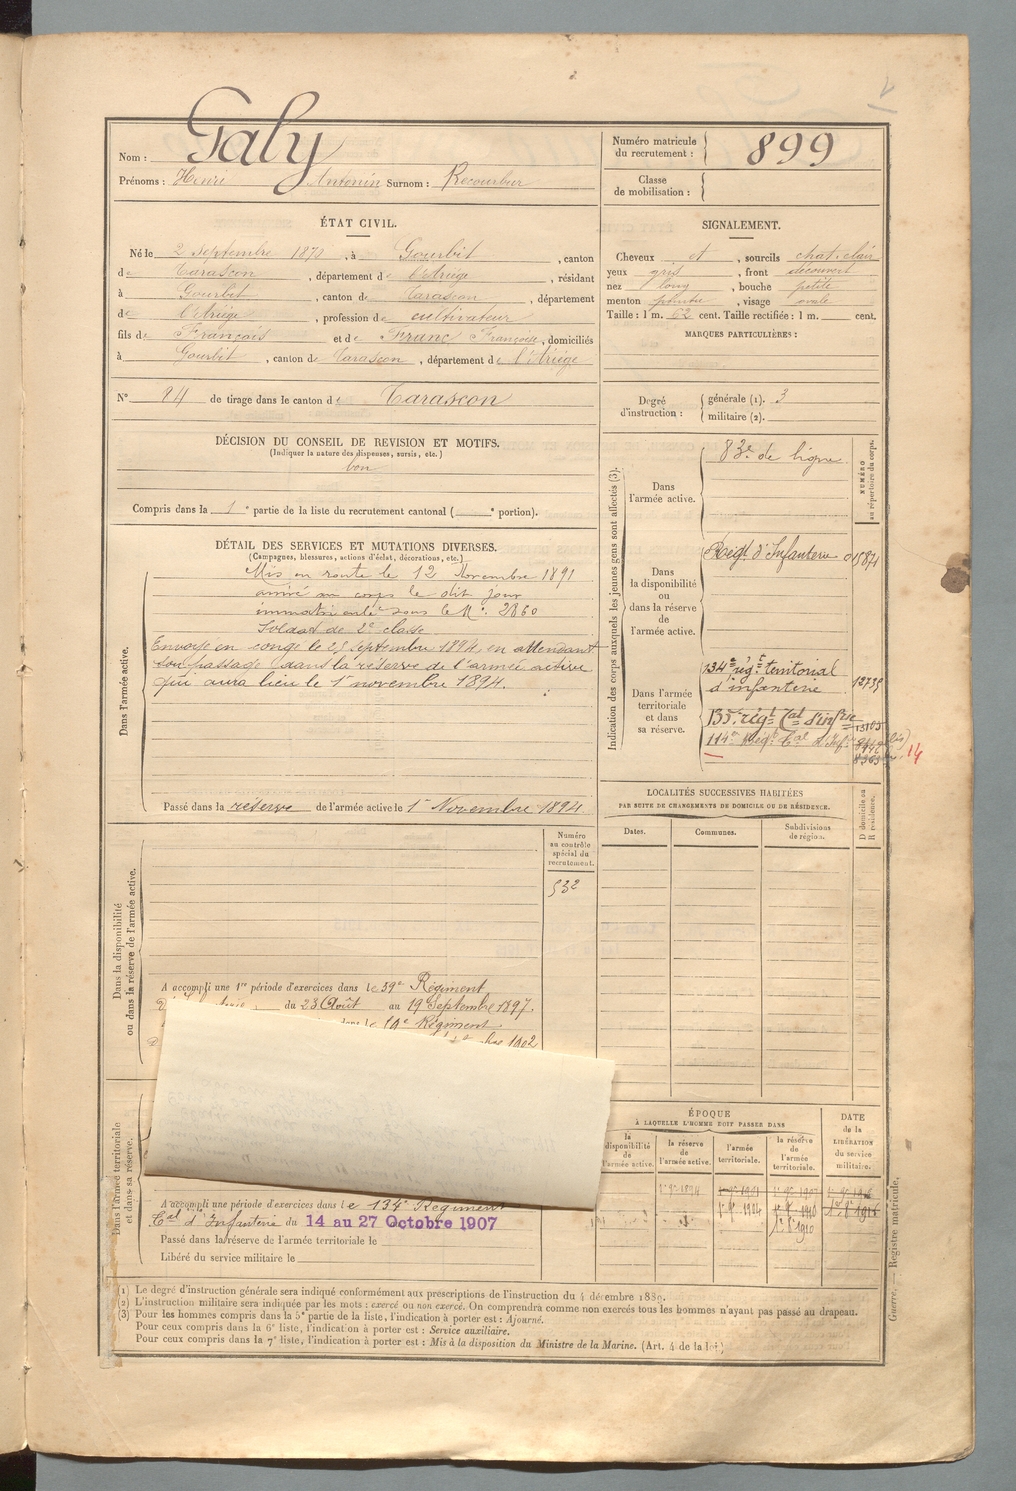 Nom : Galy
Prénoms : Henri Antonin Surnom : Recourbur
Numéro matricule du recrutement : 899
Classe de mobilisation :
ÉTAT CIVIL.
Né le 2 Septembre 1870, à Gourbit, canton
de Tarascon, département de l'Ariège, résidant
à Gourbit, canton de Tarascon, département
de l'Ariège, profession de cultivateur
fils de François et de Franc Françoise, domiciliés
à Gourbit, canton de Tarascon, département de l'Ariège
N° 24 de tirage dans le canton de Tarascon
SIGNALEMENT.
Cheveux et, sourcils chat. clair
yeux gris, front découvert
nez long, bouche petite
menton pointu, visage ovale
Taille : 1 m. 62 cent. Taille rectifiée : 1 m. cent.
MARQUES PARTICULIÈRES :
Degré d'instruction : générale (1). 3
militaire (2).
DÉCISION DU CONSEIL DE REVISION ET MOTIFS.
(Indiquer la nature des dispenses, sursis, etc.)
bon
Compris dans la 1e partie de la liste du recrutement cantonal ( e portion).
DÉTAIL DES SERVICES ET MUTATIONS DIVERSES.
(Campagnes, blessures, actions d'éclat, décorations, etc.)
Dans l'armée active.
Mis en route le 12 Novembre 1891
arrivé au corps le dit jour
immatriculé sous le N°. 2860
Soldat de 2e classe
Envoyé en congé le 25 septembre 1894, en attendant
son passage dans la réserve de l'armée active
qui aura lieu le 1er novembre 1894.
Passé dans la réserve de l'armée active le 1er Novembre 1894.
Indication des corps auxquels les jeunes gens sont affectés (3).
NUMÉRO au répertoire du corps.
Dans l'armée active.
83e de ligne
Dans la disponibilité ou dans la réserve de l'armée active.
Régt d'Infanterie 015871
Dans l'armée territoriale et dans sa réserve.
134e régt territorial d'infanterie 12739
135e régt Tal d'infrie 13105
114e Régt Tal d'Inf.
14
LOCALITÉS SUCCESSIVES HABITÉES
PAR SUITE DE CHANGEMENTS DE DOMICILE OU DE RÉSIDENCE.
Dates. Communes. Subdivisions de région. D domicile ou R résidence.
Dans la disponibilité ou dans la réserve de l'armée active.
Numéro au contrôle spécial du recrutement.
532
A accompli une 1re période d'exercices dans le 59e Régiment
du 23 Août au 19 Septembre 1897.
dans le Régiment
1902
Dans l'armée territoriale et dans sa réserve.
A accompli une période d'exercices dans le 134e Régiment
Tal d'Infanterie du 14 au 27 Octobre 1907
Passé dans la réserve de l'armée territoriale le
Libéré du service militaire le
ÉPOQUE
À LAQUELLE L'HOMME DOIT PASSER DANS
la disponibilité de l'armée active.
la réserve de l'armée active.
l'armée territoriale.
la réserve de l'armée territoriale.
DATE de la LIBÉRATION du service militaire.
(1) Le degré d'instruction générale sera indiqué conformément aux prescriptions de l'instruction du 4 décembre 1889.
(2) L'instruction militaire sera indiquée par les mots : exercé ou non exercé. On comprendra comme non exercés tous les hommes n'ayant pas passé au drapeau.
(3) Pour les hommes compris dans la 5e partie de la liste, l'indication à porter est : Ajourné.
Pour ceux compris dans la 6e liste, l'indication à porter est : Service auxiliaire.
Pour ceux compris dans la 7e liste, l'indication à porter est : Mis à la disposition du Ministre de la Marine. (Art. 4 de la loi)
Guerre. — Registre matricule.